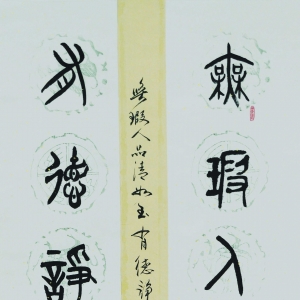 無瑕人
無瑕人品清如玉有德諍
有德諍